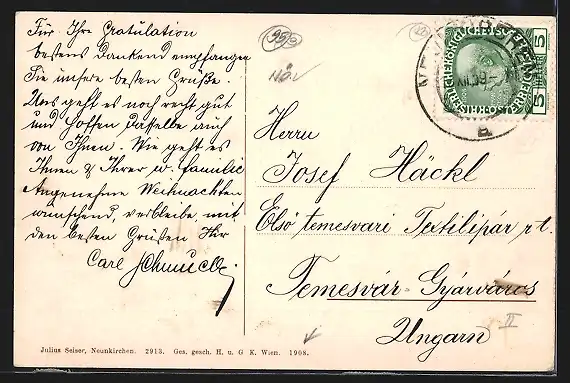 Für Ihre Gratulation
bestens dankend empfangen
Sie unsere besten Grüße.
Uns geht es noch recht gut
und hoffen dasselbe auch
von Ihnen. Wie geht es
Ihnen & Ihrer w. Familie
Angenehme Weihnachten
wünschend, verbleibe mit
den besten Grüßen Ihr
Carl
95
5
XII.09
a
Herrn
Josef Häckl
Első temesvári Textilipár r.t.
Temesvár-Gyárváros
Ungarn
II
Julius Seiser, Neunkirchen. 2913. Ges. gesch. H. u. G. K. Wien. 1908.